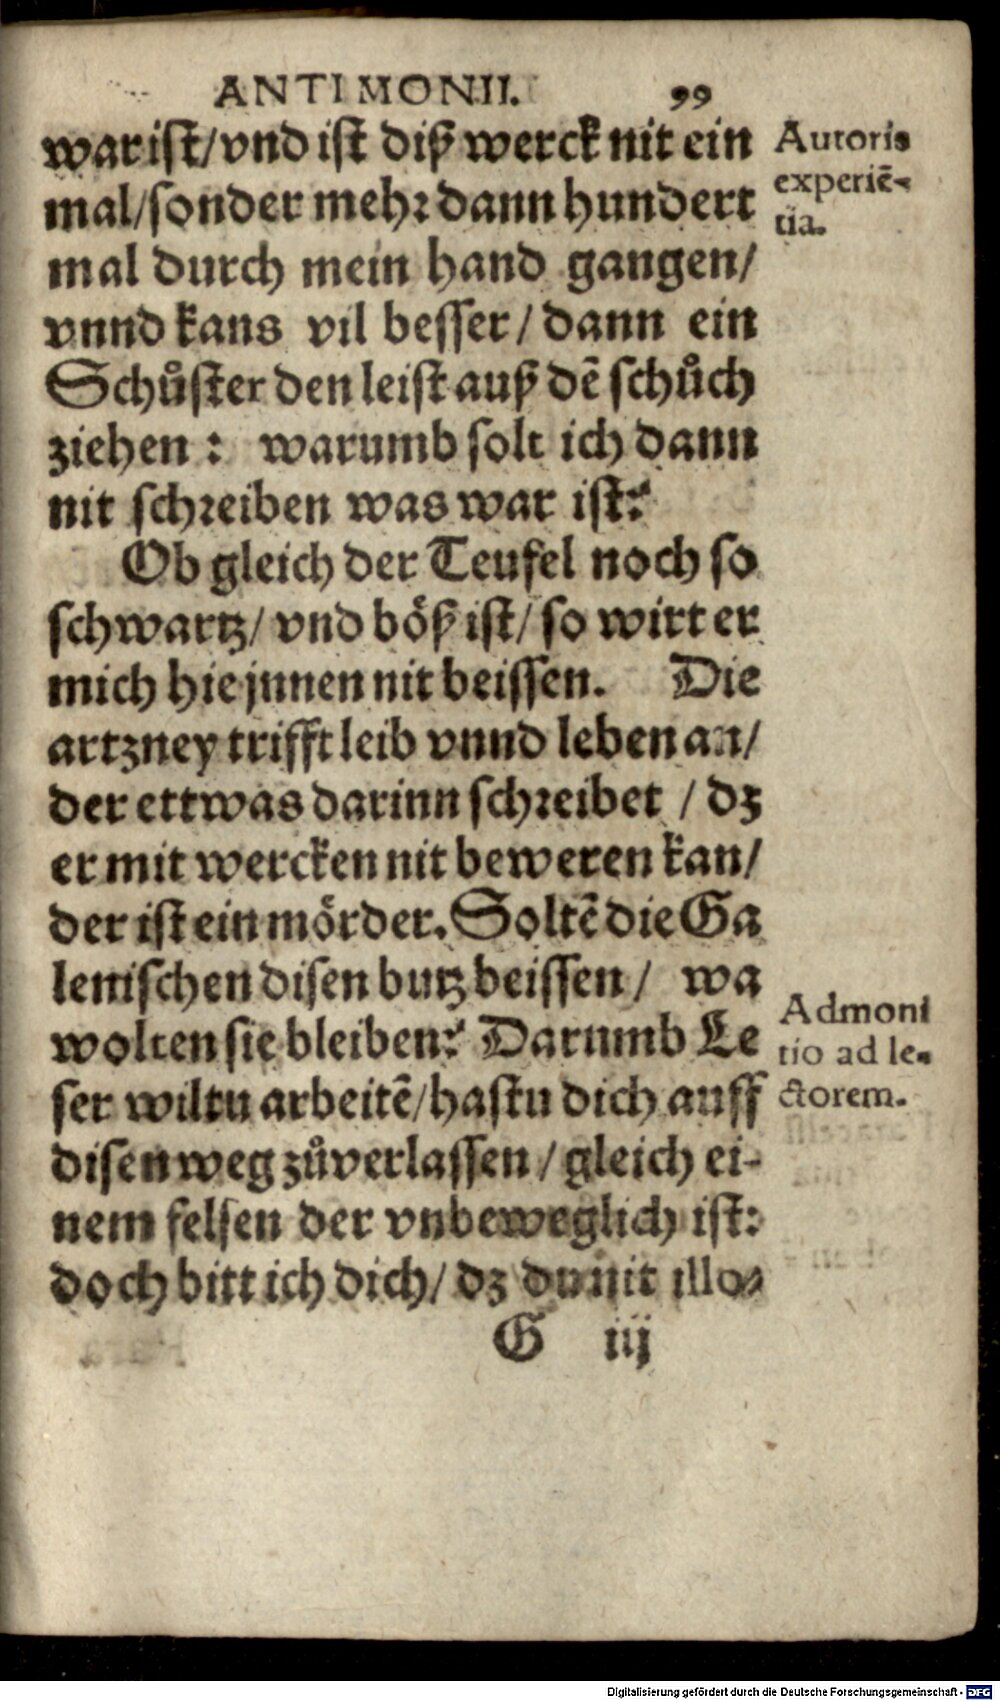 ANTIMONII. 99
war ist/vnd ist diß werck nit ein
mal/sonder mehr dann hundert
mal durch mein hand gangen/
vnnd kans vil besser/dann ein
Schůster den leist auß dē schůch
ziehen: warumb solt ich dann
nit schreiben was war ist?
Ob gleich der Teufel noch so
schwartz/vnd böß ist/so wirt er
mich hie jnnen nit beissen. Die
artzney trifft leib vnnd leben an/
der ettwas darinn schreibet/dz
er mit wercken nit beweren kan/
der ist ein mörder. Soltē die Ga
lenischen disen butz beissen/ wa
wolten sie bleiben? Darumb Le
ser wiltu arbeitē/hastu dich auff
disen weg zůverlassen/gleich ei-
nem felsen der vnbeweglich ist:
doch bitt ich dich/dz du nit illo-
G iij
Autoris
experiē-
tia.
Admoni
tio ad le-
ctorem.
Digitalisierung gefördert durch die Deutsche Forschungsgemeinschaft - DFG